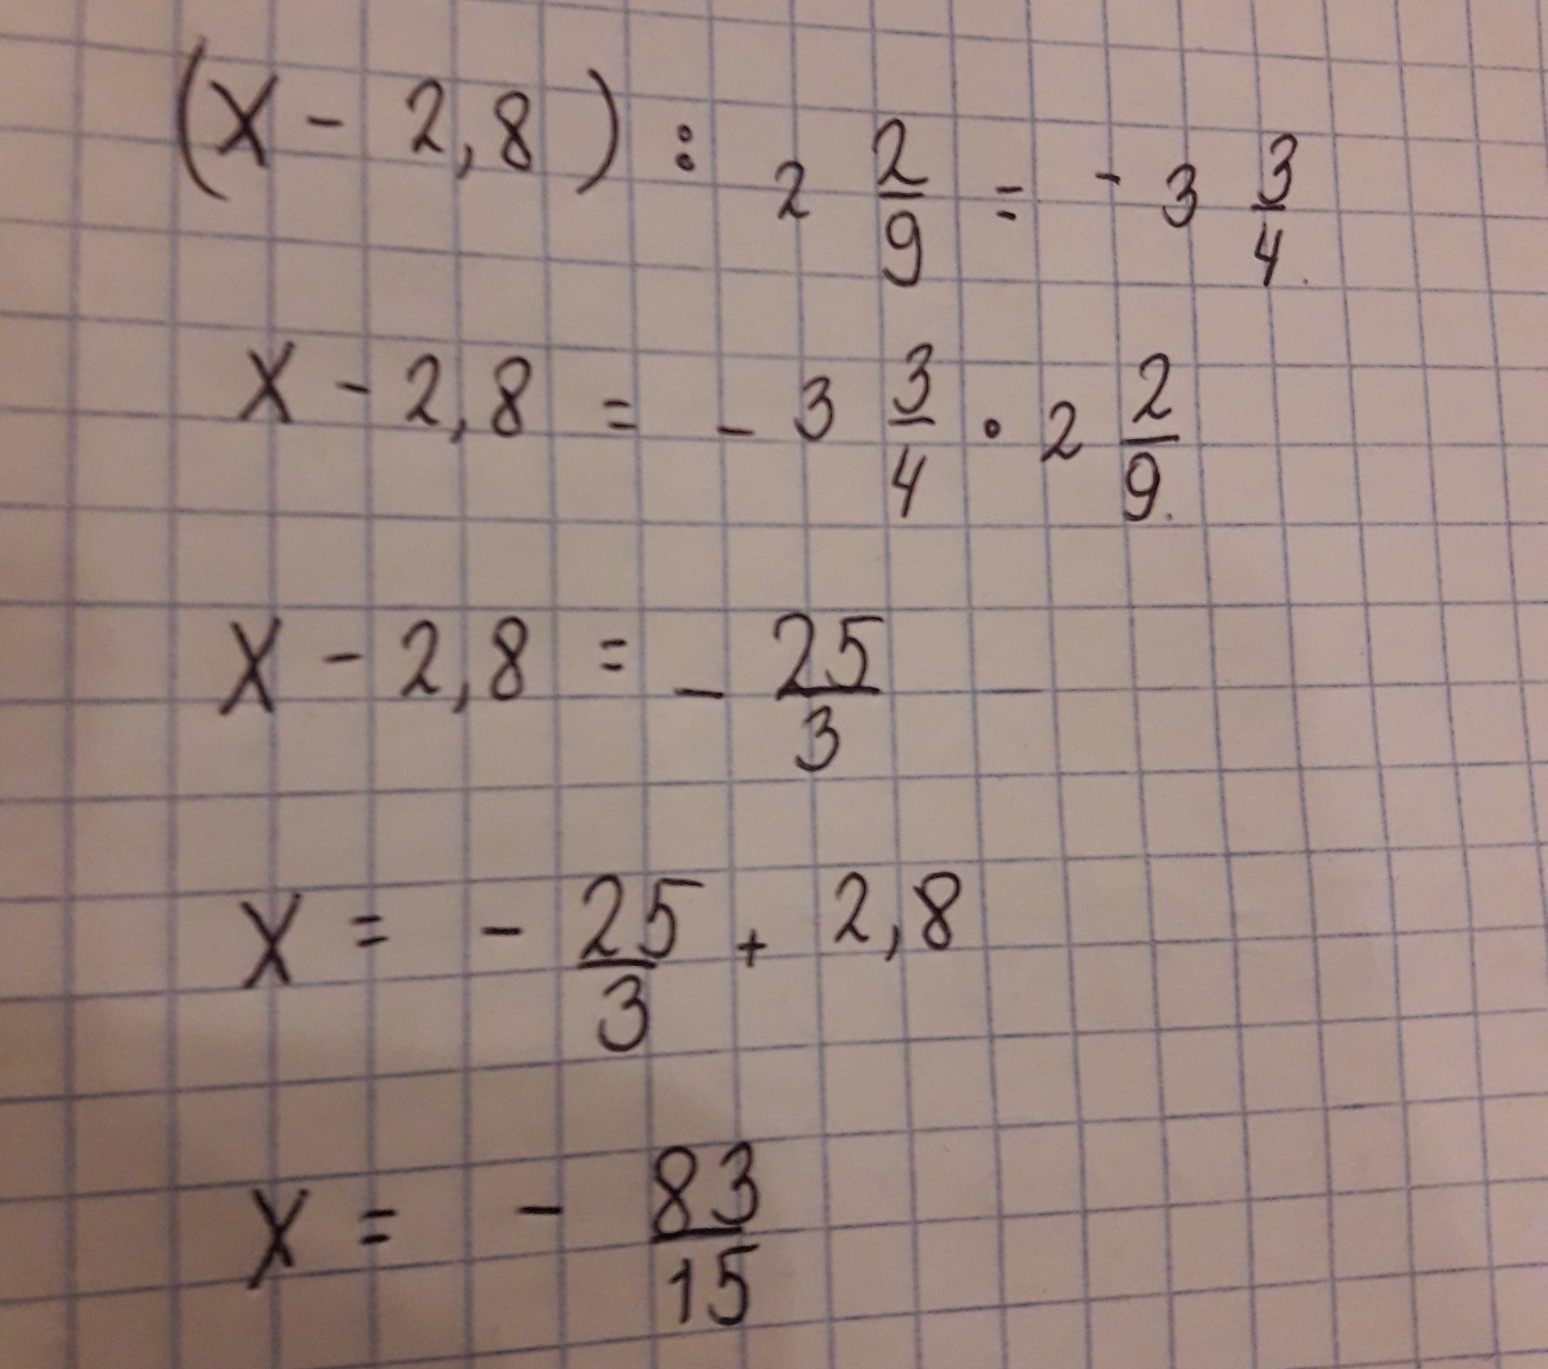 (x - 2,8) : 2 2/9 = - 3 3/4
x - 2,8 = - 3 3/4 · 2 2/9
x - 2,8 = - 25/3
x = - 25/3 + 2,8
x = - 83/15